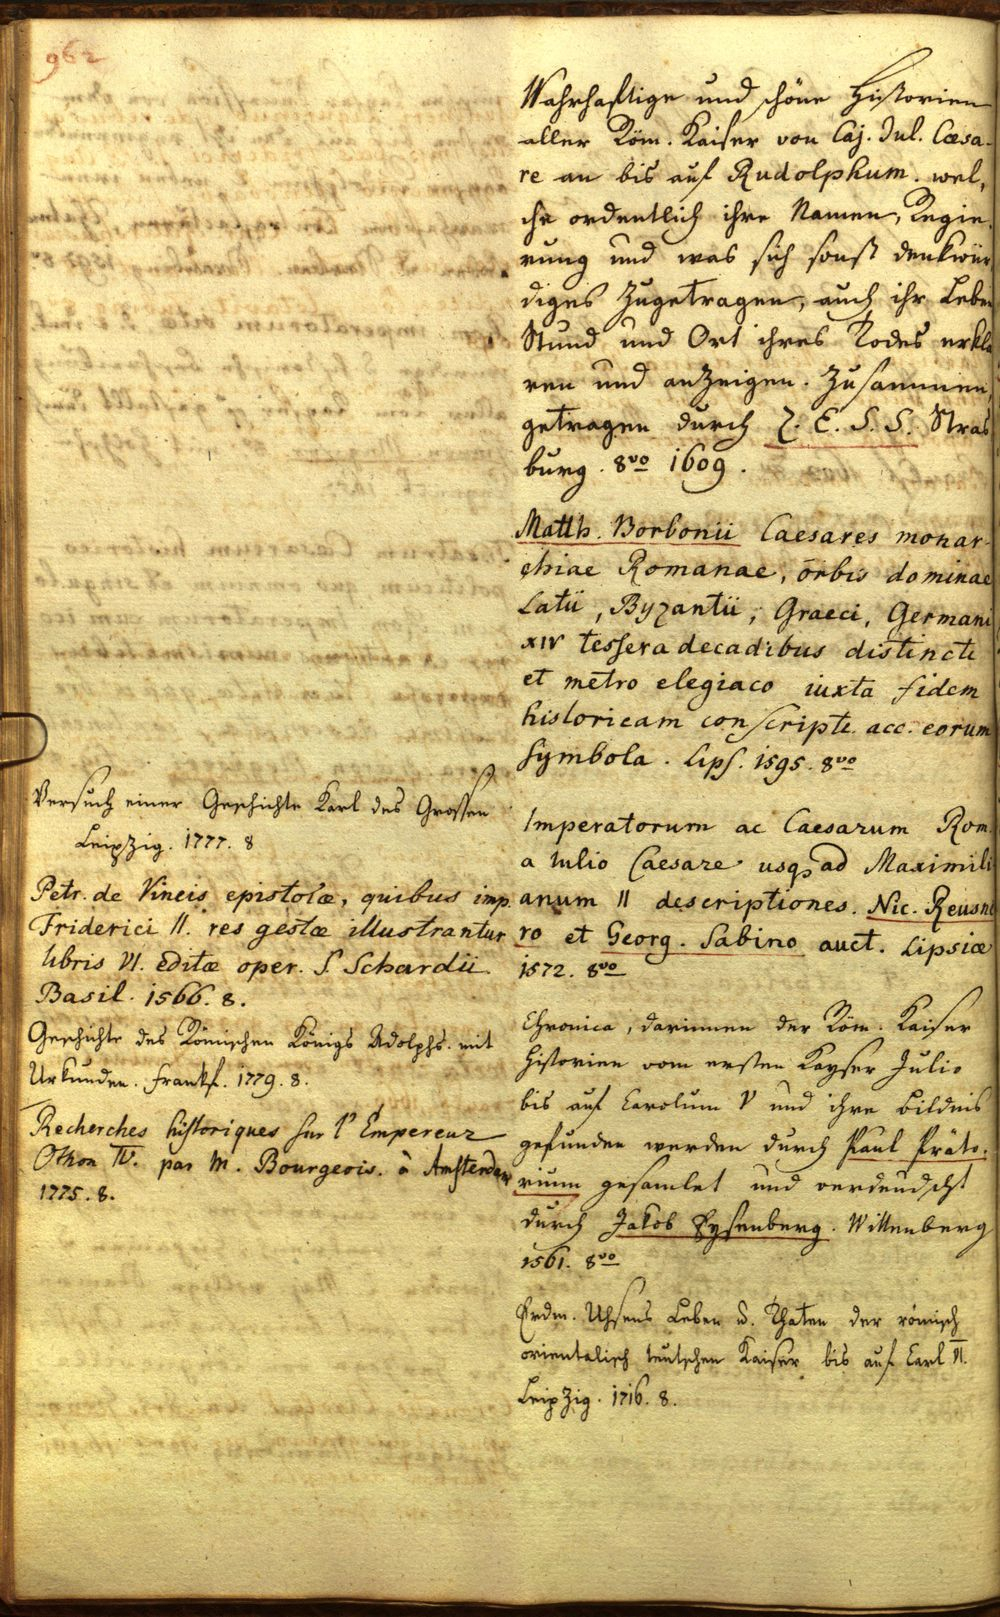 962
Versuch einer Geschichte Karl des Grossen
Leipzig. 1777. 8
Petr. de Vineis epistolæ, quibus imp.
Friderici II. res gestæ illustrantur
libris VI. editæ oper. S. Schardii
Basil. 1566. 8.
Geschichte des Römischen Königs Adolphs. mit
Urkunden. Frankf. 1779. 8.
Recherches historiques sur l'Empereur
Othon IV. par M. Bourgeois. à Amsterdam
1775. 8.
Wahrhafftige und schöne Historien
aller Röm. Kaiser von Caj. Jul. Cæsa-
re an bis auf Rudolphum. wel,
che ordentlich ihre Namen, Regie,
rung und was sich sonst denkwür
diges Zugetragen, auch ihr Leben
Stund und Ort ihres Todes erklä
ren und anZeigen. Zusammen,
getragen durch Z. E. S. S. Stras
burg. 8vo 1609.
Matth. Borbonii Caesares monar-
chiae Romanae, orbis dominae
Latii, Byzantii, Graeci, Germani
XIV tessera decadibus distincti
et metro elegiaco iuxta fidem
historicam conscripti. acc. eorum
symbola. Lips. 1595. 8vo
Imperatorum ac Caesarum Rom.
a Iulio Caesare usq, ad Maximili
anum II descriptiones. Nic. Reusne
ro et Georg. Sabino auct. Lipsiæ
1572. 8vo
Chronica, darinnen der Röm. Kaiser
Historien vom ersten Kayser Julio
bis auf Carolum V und ihre Bildnis
gefunden werden durch Paul Präto,
rium gesamlet und verdeudscht
durch Jakob Eysenberg. Wittenberg
1561. 8vo
Erdm. Uhsens Leben u. Thaten der römisch
orientalisch teutschen Kaiser bis auf Carl VI.
LeipZig. 1716. 8.